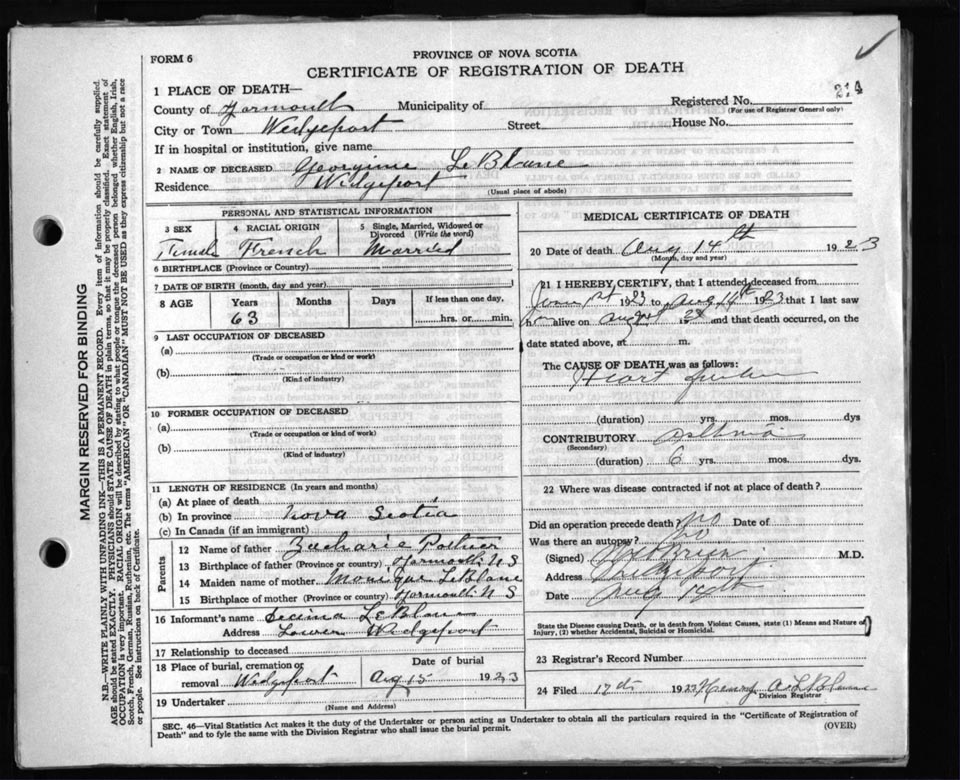 FORM 6
PROVINCE OF NOVA SCOTIA
CERTIFICATE OF REGISTRATION OF DEATH
1 PLACE OF DEATH—
County of Yarmouth Municipality of Registered No. 214
(For use of Registrar General only)
City or Town Wedgeport Street House No.
If in hospital or institution, give name
2 NAME OF DECEASED Georgine LeBlanc
Residence Wedgeport
(Usual place of abode)
PERSONAL AND STATISTICAL INFORMATION
3 SEX 4 RACIAL ORIGIN 5 Single, Married, Widowed or Divorced (Write the word)
Female French Married
6 BIRTHPLACE (Province or Country)
7 DATE OF BIRTH (month, day and year)
8 AGE Years Months Days If less than one day,
63 hrs. or min.
9 LAST OCCUPATION OF DECEASED
(a)
(Trade or occupation or kind or work)
(b)
(Kind of industry)
10 FORMER OCCUPATION OF DECEASED
(a)
(Trade or occupation or kind of work)
(b)
(Kind of industry)
11 LENGTH OF RESIDENCE (In years and months)
(a) At place of death
(b) In province Nova Scotia
(c) In Canada (if an immigrant)
Parents
12 Name of father Zacharie Pothier
13 Birthplace of father (Province or country) Yarmouth N S
14 Maiden name of mother Monique LeBlanc
15 Birthplace of mother (Province or country) Yarmouth N S
16 Informant's name LeBlanc
Address Lower Wedgeport
17 Relationship to deceased
18 Place of burial, cremation or removal Wedgeport Date of burial Aug 15 1923
19 Undertaker
(Name and Address)
MEDICAL CERTIFICATE OF DEATH
20 Date of death Aug 14th 1923
(Month, day and year)
21 I HEREBY CERTIFY, that I attended deceased from
1923 to Aug 14th 1923 that I last saw
h alive on August 19 and that death occurred, on
date stated above, at m.
The CAUSE OF DEATH was as follows:
Heart
(duration) yrs. mos. dys
CONTRIBUTORY Asthma
(Secondary)
(duration) 6 yrs. mos. dys.
22 Where was disease contracted if not at place of death?
Did an operation precede death? No Date of
Was there an autopsy? No
(Signed) M.D.
Address Wedgeport
Date Aug
State the Disease causing Death, or in death from Violent Causes, state (1) Means and Nature of
Injury, (2) whether Accidental, Suicidal or Homicidal.
23 Registrar's Record Number
24 Filed 17th 1923 Henry A. LeBlanc
Division Registrar
SEC. 46—Vital Statistics Act makes it the duty of the Undertaker or person acting as Undertaker to obtain all the particulars required in the "Certificate of Registration of
Death" and to fyle the same with the Division Registrar who shall issue the burial permit.
(OVER)
MARGIN RESERVED FOR BINDING
N.B.—WRITE PLAINLY WITH UNFADING INK—THIS IS A PERMANENT RECORD. Every item of information should be carefully supplied.
AGE should be stated EXACTLY. PHYSICIANS should STATE CAUSE OF DEATH in plain terms, so that it may be properly classified. Exact statement of
OCCUPATION is very important. RACIAL ORIGIN will be described by stating to what people or tongue the deceased person belonged whether English, Irish,
Scotch, French, German, Russian, Ruthenian, etc. The terms "AMERICAN" OR "CANADIAN" MUST NOT BE USED as they express citizenship but not a race
or people. See instructions on back of Certificate.